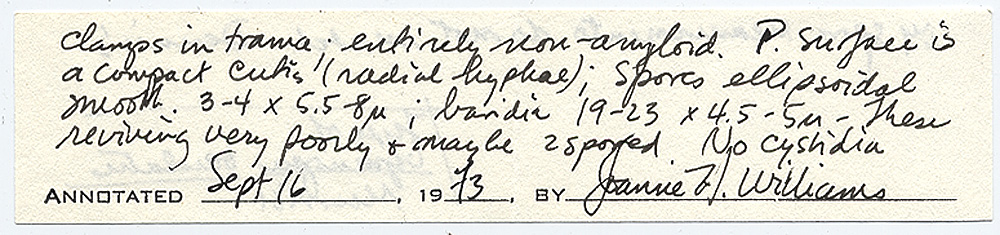 clamps in trama; entirely non-amyloid. P. surface is
a compact cutis (radial hyphae); Spores ellipsoidal
smooth. 3-4 x 5.5-8µ; basidia 19-23 x 4.5-5µ - these
reviving very poorly & maybe 2 spored. No cystidia
ANNOTATED Sept 16, 1973. BY Joanne Williams